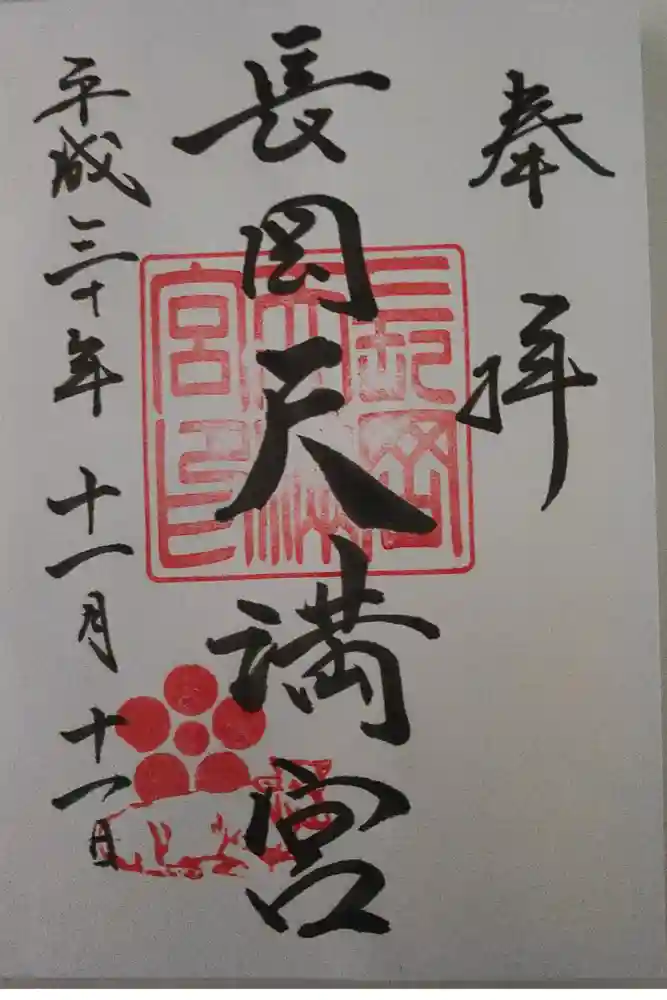 奉拝
長岡天満宮
平成三十年 十一月 十一日
長岡
天満
宮印